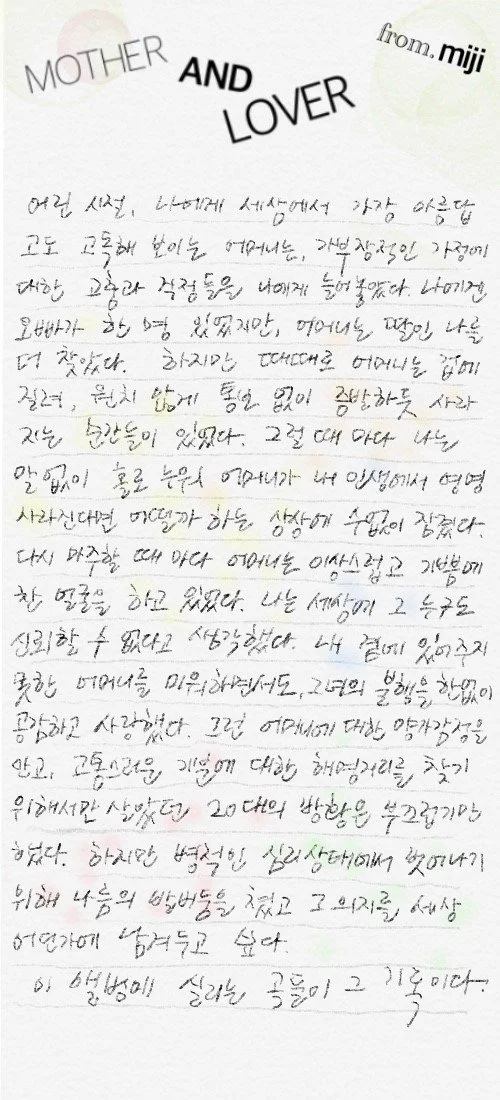 MOTHER AND LOVER
from. miji
어린 시절, 나에게 세상에서 가장 아름답
고도 고독해 보이는 어머니는, 가부장적인 가정에
대한 고충과 걱정들을 나에게 늘어놓았다. 나에겐
오빠가 한 명 있었지만, 어머니는 딸인 나를
더 찾았다. 하지만 때때로 어머니는 겁에
질려, 원치 않게 통보 없이 증발하듯 사라
지는 순간들이 있었다. 그럴 때 마다 나는
말 없이 홀로 누워 어머니가 내 인생에서 영영
사라진다면 어떨까 하는 상상에 수없이 잠겼다.
다시 마주할 때 마다 어머니는 이상스럽고 기쁨에
찬 얼굴을 하고 있었다. 나는 세상에 그 누구도
신뢰할 수 없다고 생각했다. 내 곁에 있어주지
못한 어머니를 미워하면서도, 그녀의 불행을 한없이
공감하고 사랑했다. 그런 어머니에 대한 양가감정을
안고, 고통스러운 기분에 대한 해명거리를 찾기
위해서만 살았던 20대의 방황은 부끄럽기만
하였다. 하지만 병적인 심리상태에서 벗어나기
위해 나름의 발버둥을 쳤고 그 의지를 세상
어딘가에 남겨두고 싶다.
이 앨범에 실리는 곡들이 그 기록이다.